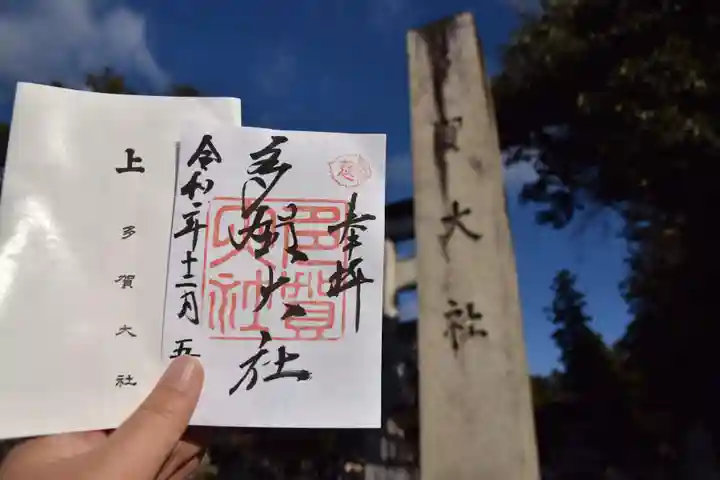 奉拝
多賀大社
令和二年十二月五
多賀大社
上
多賀大社
賀大社